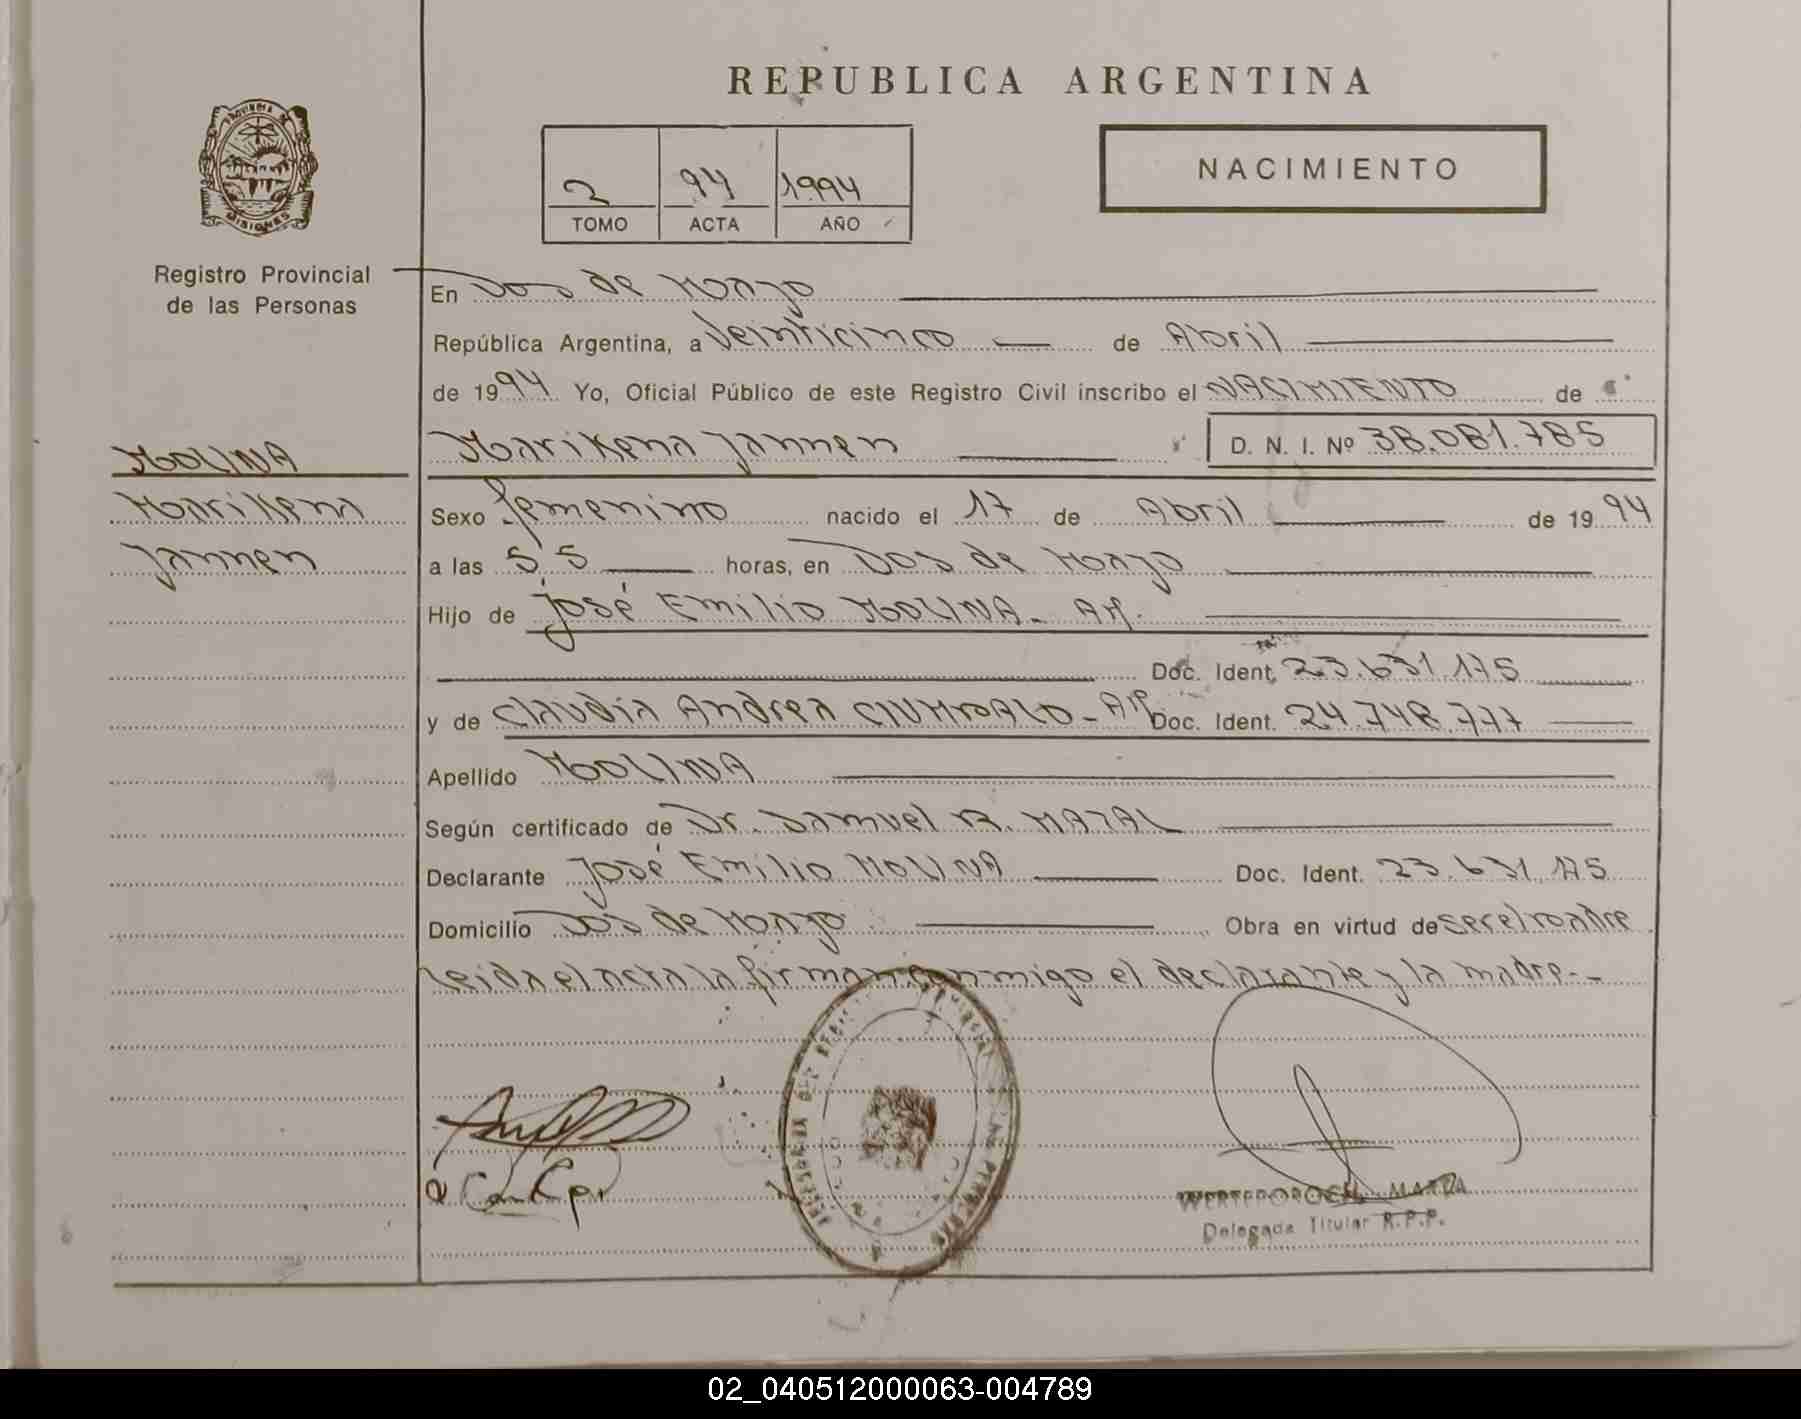 REPUBLICA ARGENTINA
PROVINCIA DE
MISIONES
Registro Provincial
de las Personas
2 94 1994
TOMO ACTA AÑO
NACIMIENTO
En Dos de Mayo
República Argentina, a Veinticinco de Abril
de 1994 Yo, Oficial Público de este Registro Civil inscribo el NACIMIENTO de
MOLINA
Marilena
Jannen
Marilena Jannen D. N. I. Nº 38.081.785
Sexo femenino nacido el 17 de Abril de 1994
a las 5,5 horas, en Dos de Mayo
Hijo de José Emilio MOLINA - Ar.
Doc. Ident. 23.631.175
y de Claudia Andrea Doc. Ident. 24.748.777
Apellido MOLINA
Según certificado de Dr. Samuel R.
Declarante José Emilio MOLINA Doc. Ident. 23.631.175
Domicilio Dos de Mayo Obra en virtud de ser el padre
leida el acta la firman conmigo el declarante y la madre.-
MARTA
Delegada Titular R.P.P.
02_040512000063-004789